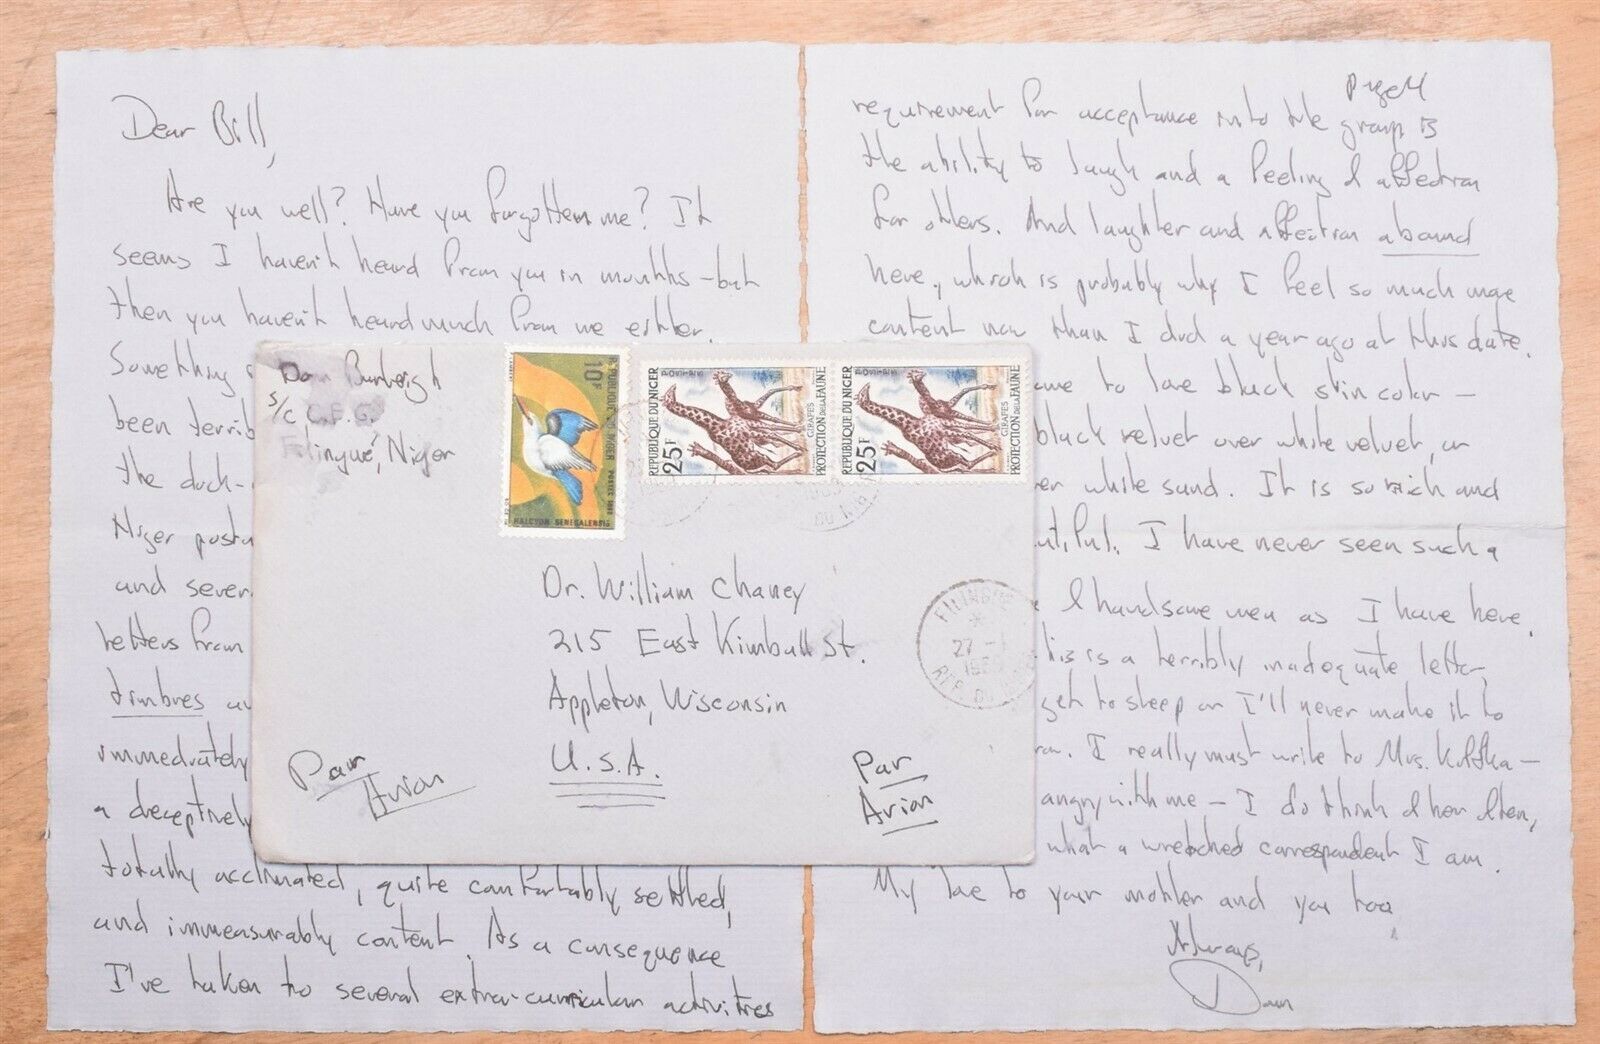 Dear Bill,
Are you well? Have you forgotten me? It
seems I haven't heard from you in months - but
then you haven't heard much from me either.
Something
been terrib
the dock-
Niger posta
and sever
letters from
timbres
immediately
a deceptively
totally acclimated, quite comfortably settled,
and immeasurably content. As a consequence
I've taken to several extra-curricular activities
Burleigh
s/c C.E.G.
Filingué, Niger
REPUBLIQUE DU NIGER
10F
POSTES
HALCYON SENEGALENSIS
REPUBLIQUE DU NIGER
25F
GIRAFES
PROTECTION DE LA FAUNE
REPUBLIQUE DU NIGER
25F
GIRAFES
PROTECTION DE LA FAUNE
Dr. William Chaney
215 East Kimball St.
Appleton, Wisconsin
U.S.A.
Par
Avion
Par
Avion
FILINGUE
27
REP. DU NIGER
page 4
requirement for acceptance into the group is
the ability to laugh and a feeling of affection
for others. And laughter and affection abound
here, which is probably why I feel so much more
content now than I did a year ago at this date.
ome to love black skin color -
black velvet over white velvet, or
er white sand. It is so rich and
utiful. I have never seen such a
of handsome men as I have here.
his is a terribly inadequate letter,
get to sleep or I'll never make it to
I really must write to Mrs. Koffka -
angry with me - I do think of her often,
what a wretched correspondent I am.
My love to your mother and you too
Always,